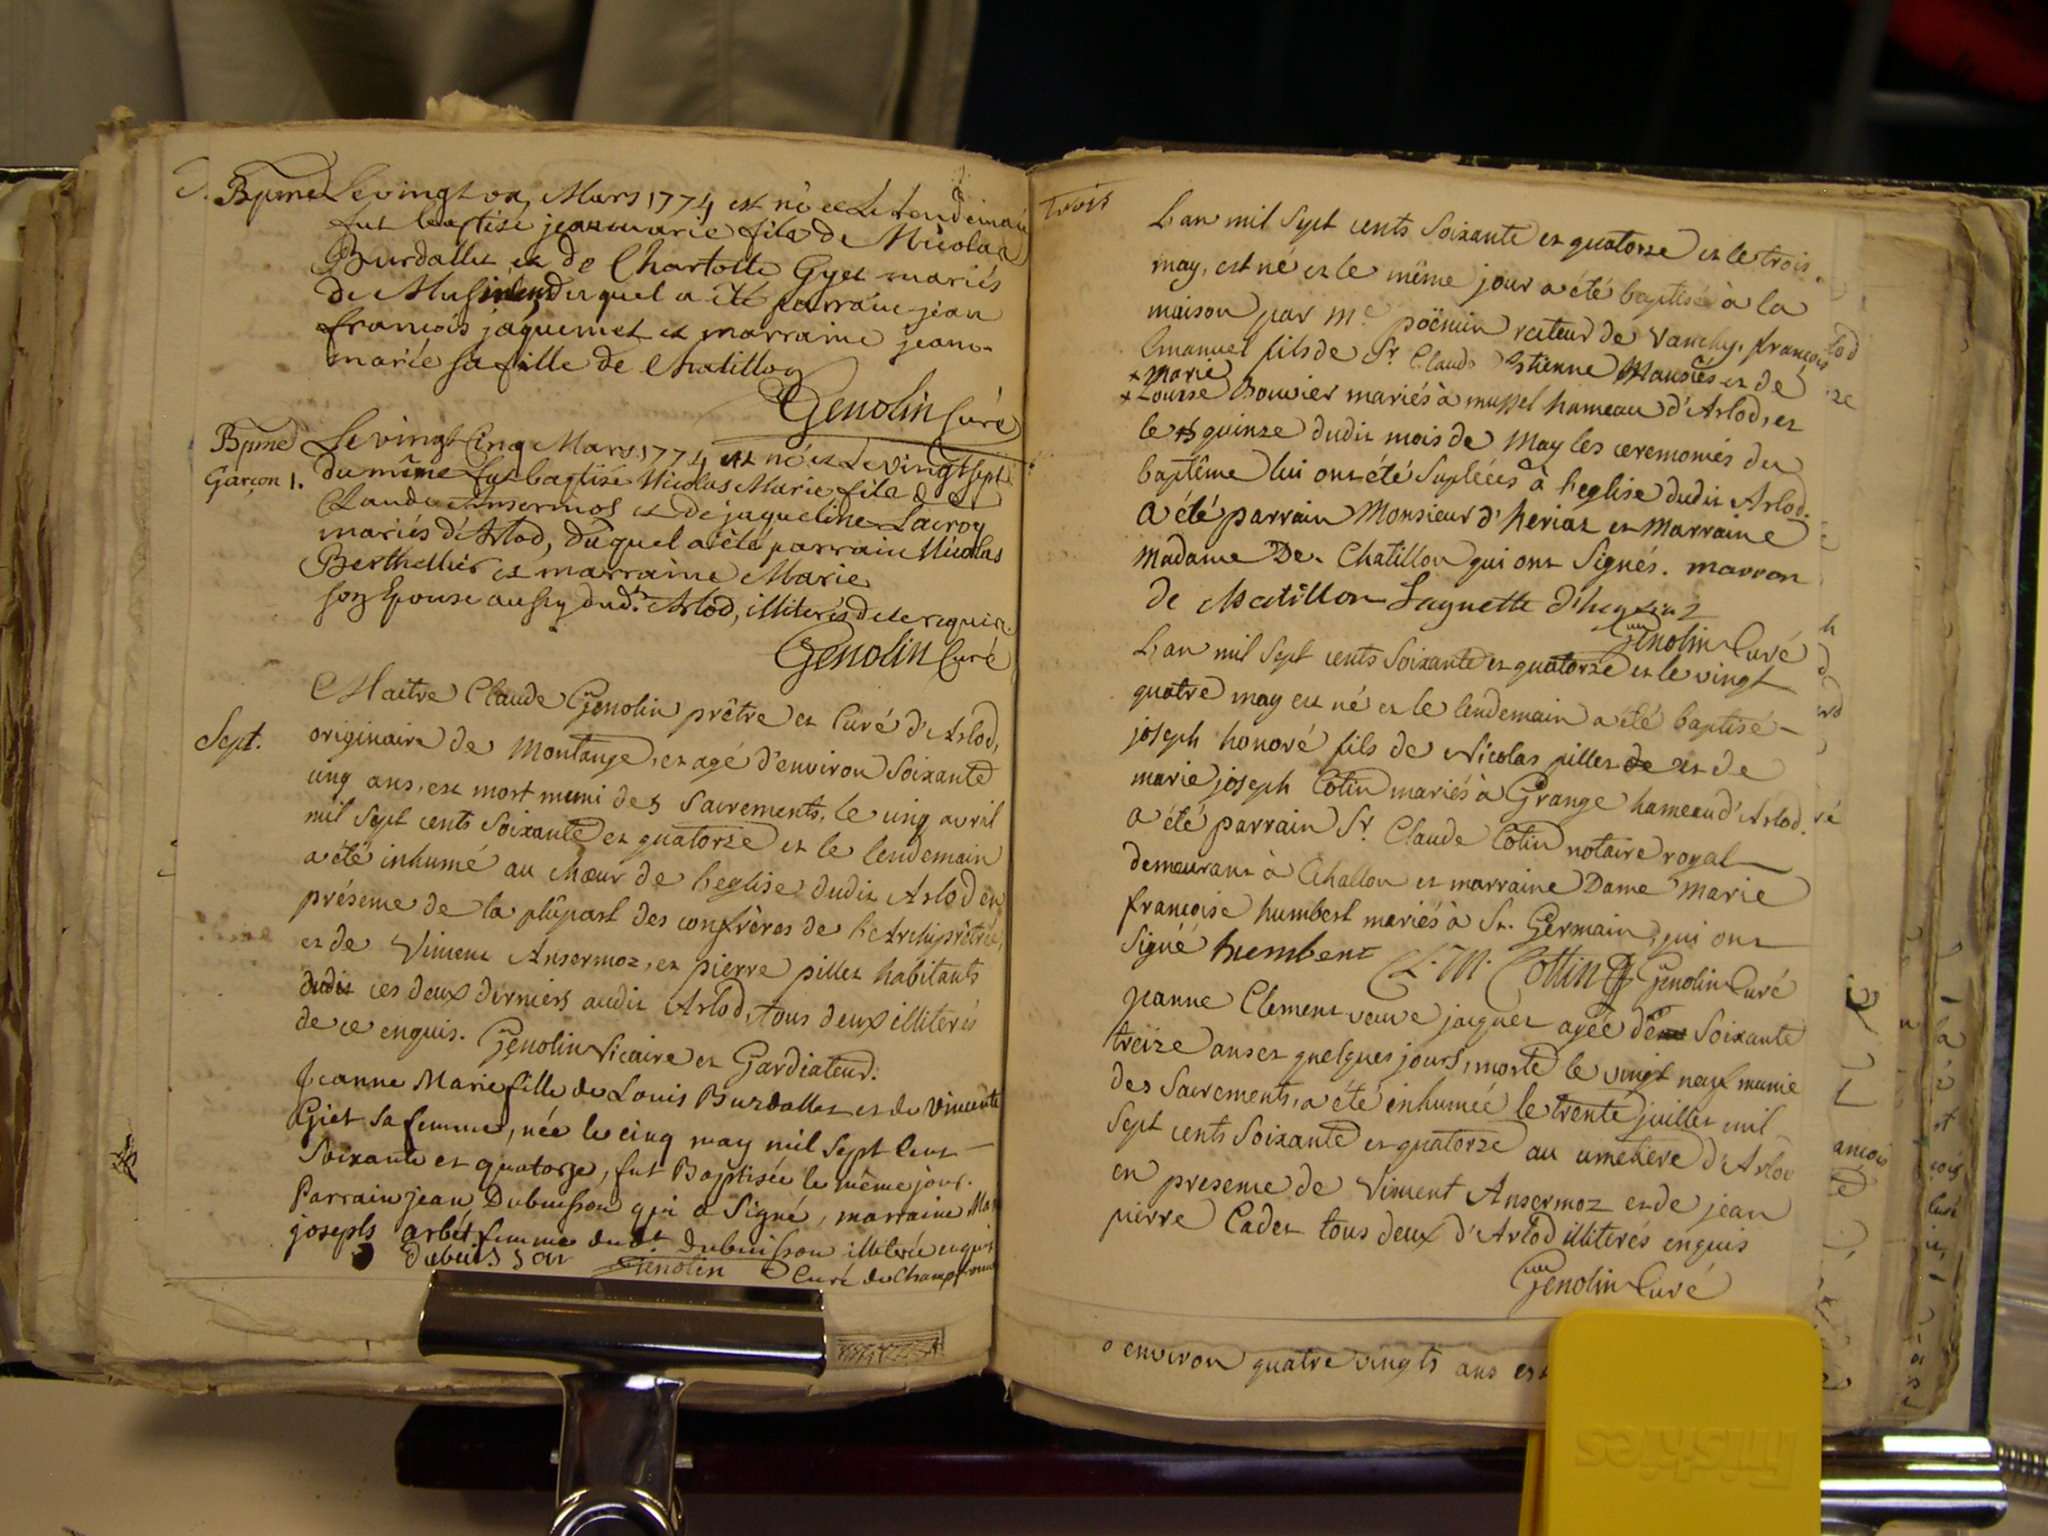 Bpme Le vingt Mars 1774 est né et le lendemain
fut baptisé jean marie fils de Nicolas
Burdallet et de Charlotte Gyet mariés
de Musinens duquel a été parrain jean
françois jaquemet et marraine jeane
marie sa fille de Chatillon
Genolin Curé
Bpme Le vingt Cinq Mars 1774 est né et le vingt sept
Garçon 1. du même fut baptisé Nicolas Marie fils de
Claude Ansermos et de jaqueline Lacroy
mariés d'Arlod, duquel a été parrain Nicolas
Berthellier et marraine Marie
son Epouse aussy dudt. Arlod, illiterés de ce requis.
Genolin Curé
Maitre Claude Genolin prêtre et Curé d'Arlod,
Sept. originaire de Montange, et agé d'environ Soixante
cinq ans, est mort muni des Sacrements, le cinq avril
mil Sept cents Soixante et quatorze et le lendemain
a été inhumé au Chœur de l'eglise dudit Arlod en
présence de la plûpart des confrères de l'Archiprêtré,
et de Vincent Ansermoz, et pierre pillet habitants
dudit ces deux derniers audit Arlod, tous deux illiterés
de ce enquis. Genolin Vicaire et Gardiateur.
Jeanne Marie fille de Louis Burdallet et de Vincente
Giet sa femme, née le cinq may mil Sept Cent
Soixante et quatorze, fut Baptisée le même jour.
Parrain jean Dubuisson qui a Signé, marraine Mar
josephs arbet femme dudt. dubuisson illiterée enquis
Dubuisson Genolin Curé de Champfromier
trois
L'an mil Sept cents Soixante et quatorze et le trois
may, est né et le même jour a été baptisé à la
maison par Me. poëncin recteur de Vanchy, françois
Emanuel fils de Sr. Claude Estienne Mauries et de
+ Marie
+ Louise Bouvier mariés à mussel hameau d'Arlod, et
le quinze dudit mois de May les ceremonies du
baptême lui ont été Suplées à l'eglise dudit Arlod.
A été parrain Monsieur d'heriaz et Marraine
Madame De Chatillon qui ont Signés. marron
de Chatillon Laguette d'heriaz
Genolin Curé
L'an mil Sept cents Soixante et quatorze et le vingt
quatre may est né et le lendemain a été baptisé
joseph honoré fils de Nicolas pillet de et de
marie joseph Cotin mariés à Grange hameau d'Arlod.
a été parrain Sr. Claude Cotin notaire royal
demeurant à Challon et marraine Dame Marie
françoise humbert mariés à St. Germain, qui ont
Signé humbert Cl. M. Cottin Genolin Curé
jeanne Clement veuve jacquet agée de Soixante
treize ans et quelques jours, morte le vingt neuf munie
des Sacrements, a été inhumée le trente juillet mil
Sept cents Soixante et quatorze au cimetiere d'Arlod
en presence de Vincent Ansermoz et de jean
pierre Cadet tous deux d'Arlod illiterés enquis
Genolin Curé
environ quatre vingts ans est
friskies